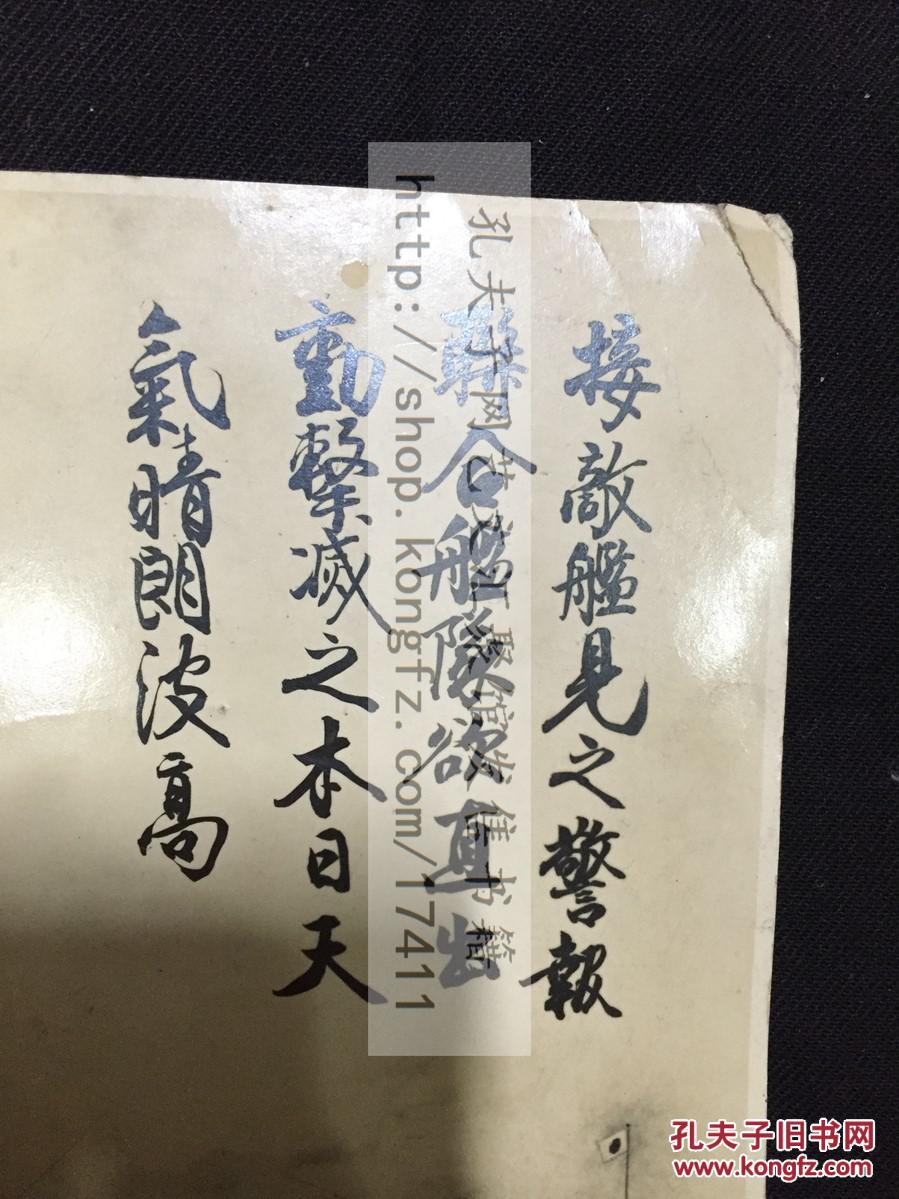 接敵艦見之警報
聯合艦隊欲直出
動擊滅之本日天
氣晴朗波高
孔夫子网艺文汇聚馆发售书籍
http://shop.kongfz.com/17411
孔夫子旧书网
www.kongfz.com